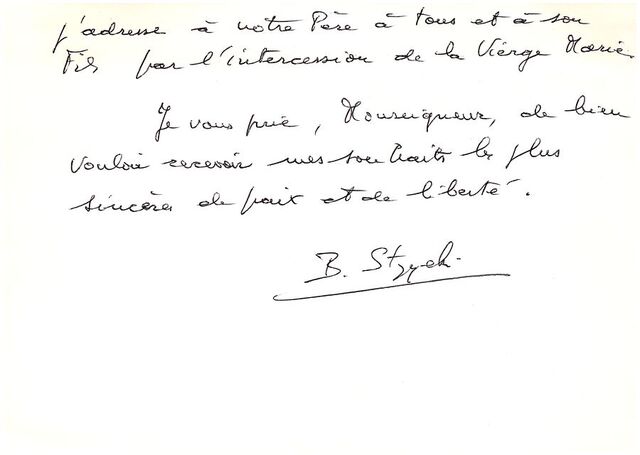 j'adresse à notre Père à tous et à son
Fils par l'intercession de la Vierge Marie.
Je vous prie, Monseigneur, de bien
vouloir recevoir mes souhaits les plus
sincères de paix et de liberté.
B.